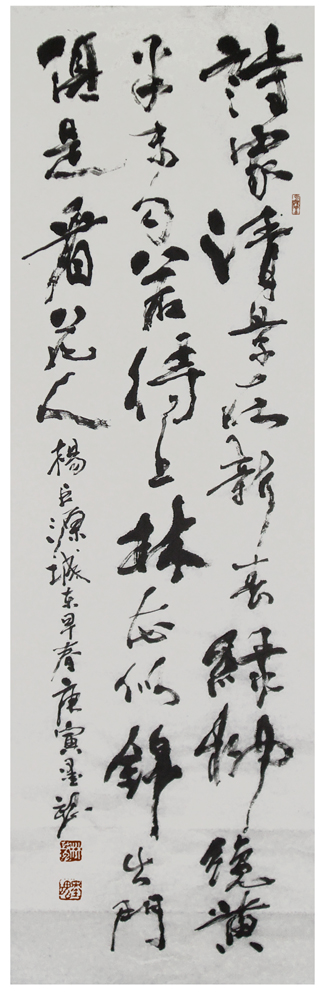 詩家清景在新春綠柳纔黃
半未勻若待上林花似錦出門
俱是看花人
楊巨源城東早春庚寅墨